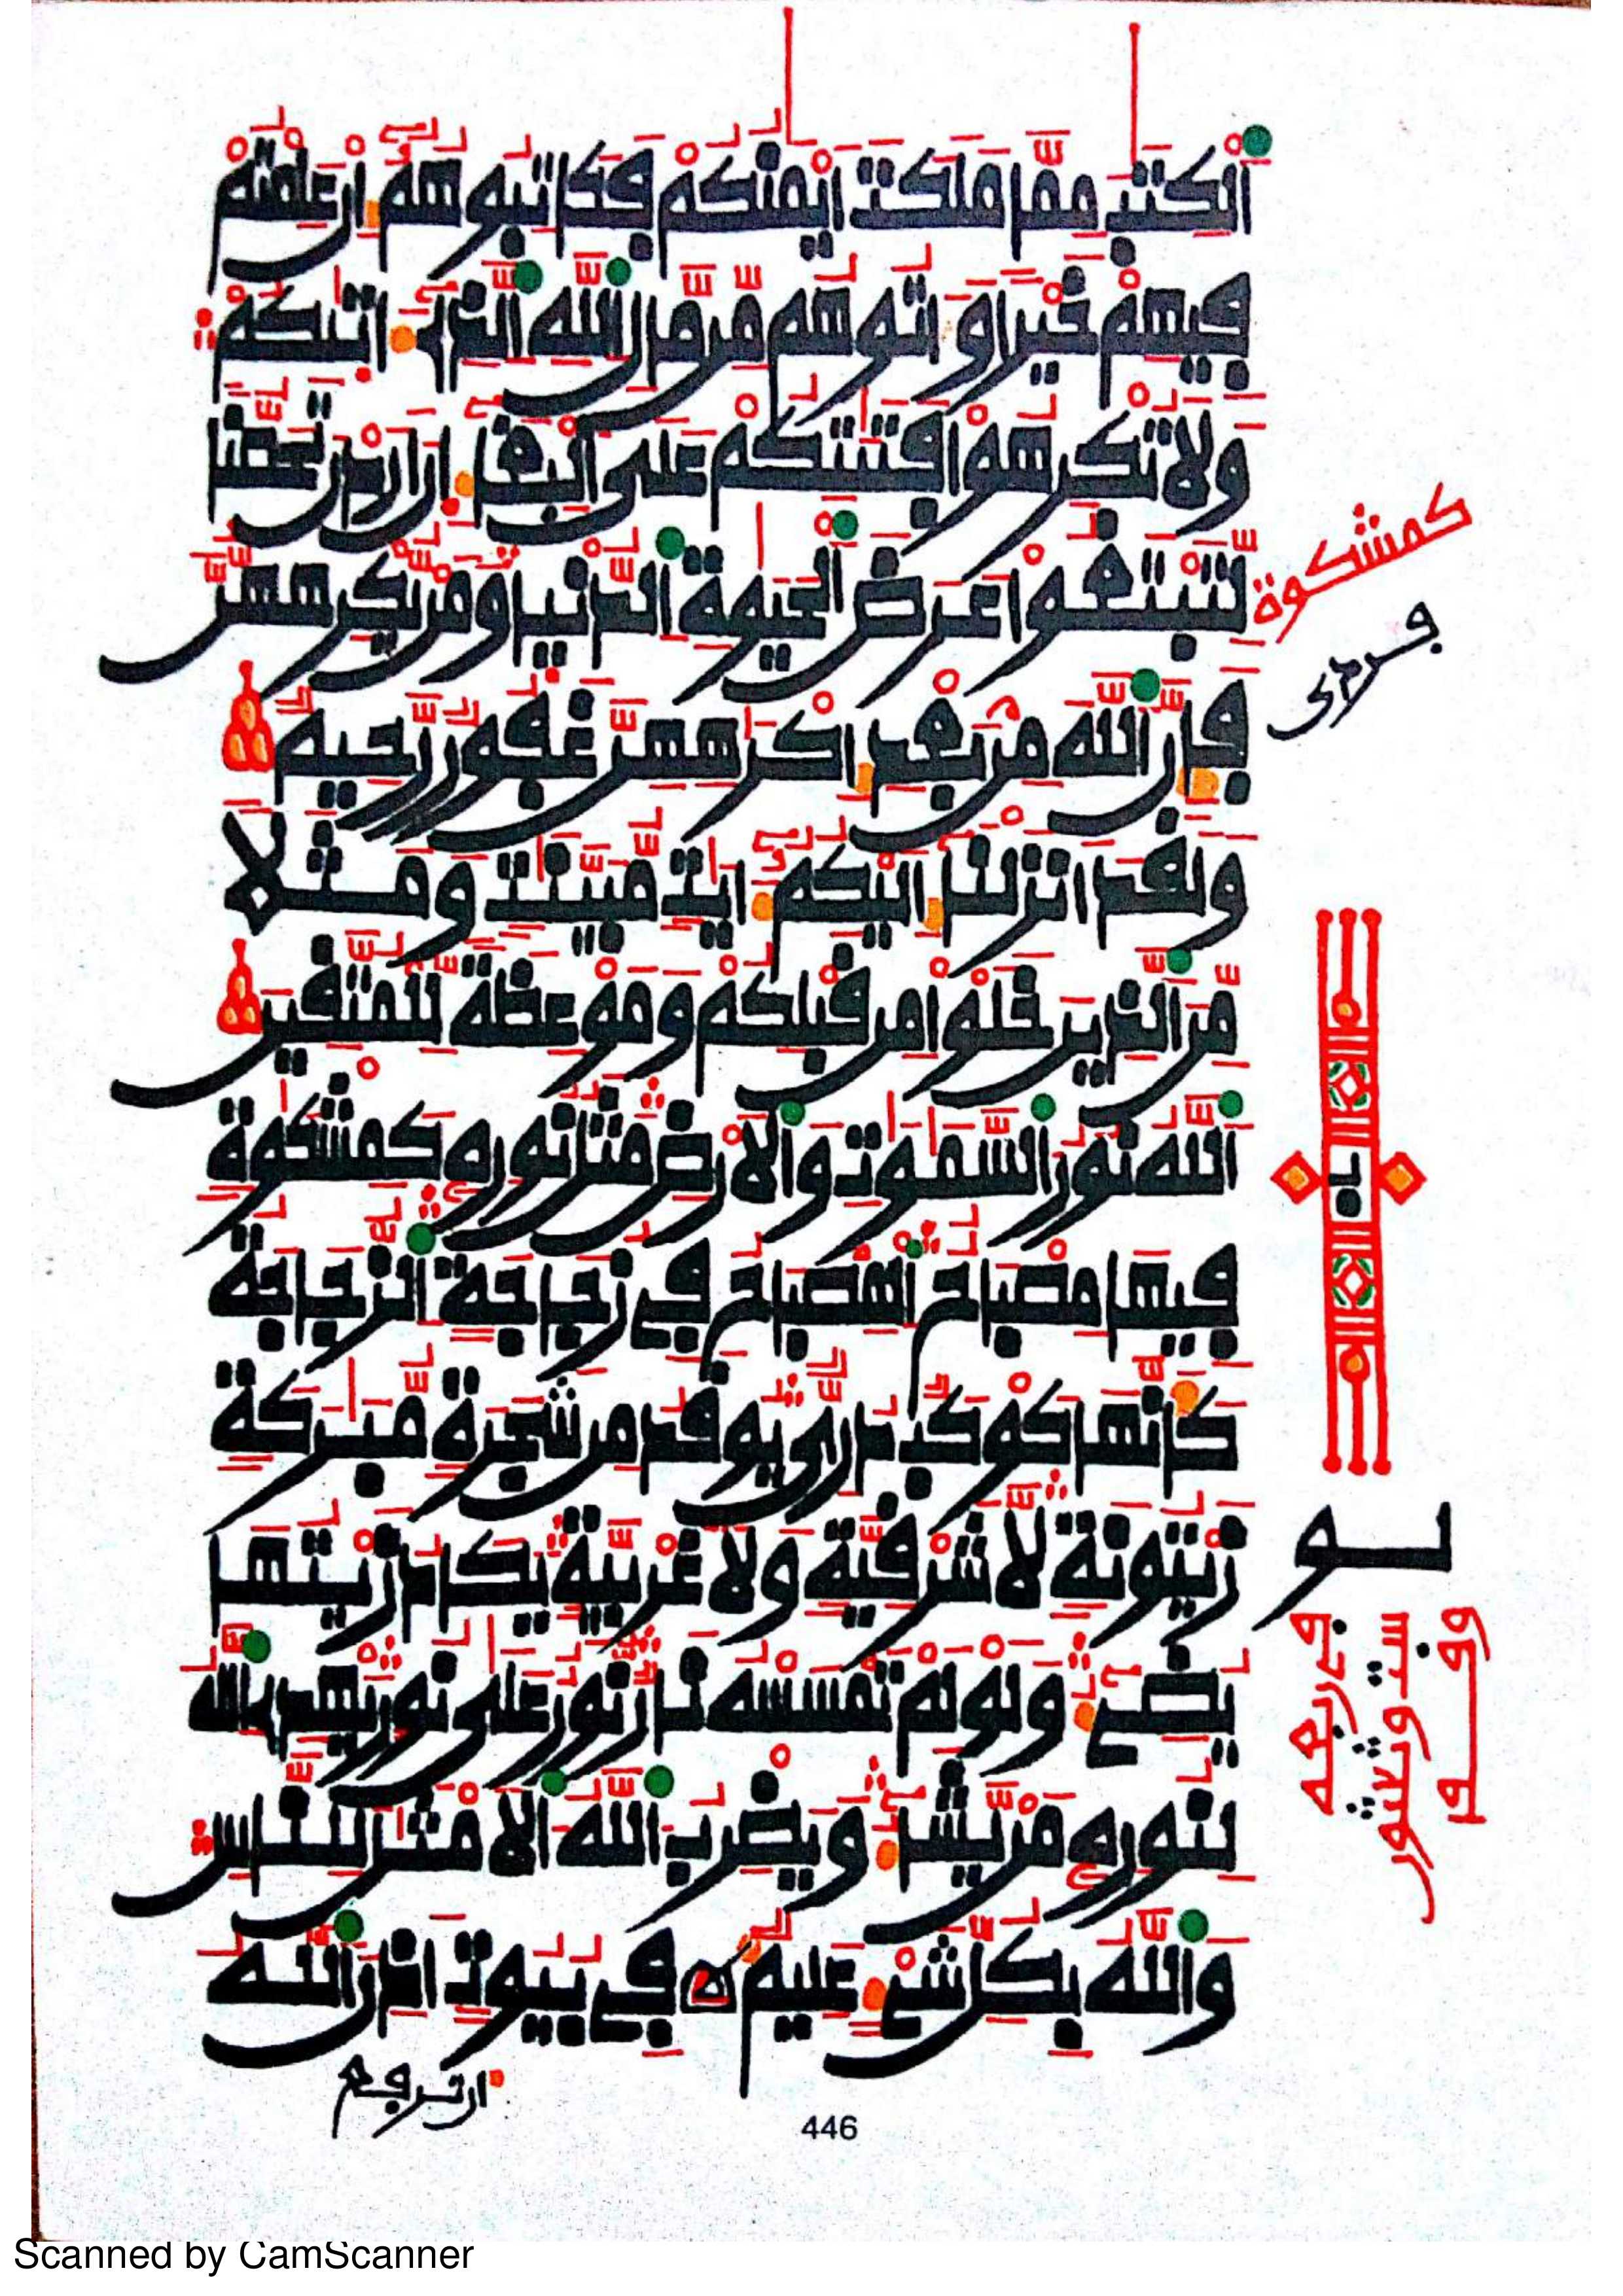 الكتب مما ملكت ايمنكم فكاتبوهم ان علمتم
فيهم خيرا واتوهم من مال الله الذي اتيكم
ولا تكرهوا فتيتكم على البغا ان اردن تحصنا
لتبتغوا عرض الحيوة الدنيا ومن يكرههن
كمشكوة
فردى
فان الله من بعد اكرههن غفور رحيم
ولقد انزلنا اليكم ايت مبينت ومثلا
من الذين خلوا من قبلكم وموعظة للمتقين
الله نور السموت والارض مثل نوره كمشكوة
فيها مصباح المصباح في زجاجة الزجاجة
كانها كوكب دري يوقد من شجرة مبركة
زيتونة لا شرقية ولا غربية يكاد زيتها
يضيء ولو لم تمسسه نار نور على نور يهدي الله
لنوره من يشا ويضرب الله الامثل للناس
والله بكل شيء عليم في بيوت اذن الله
ان ترفع
446
Scanned by CamScanner